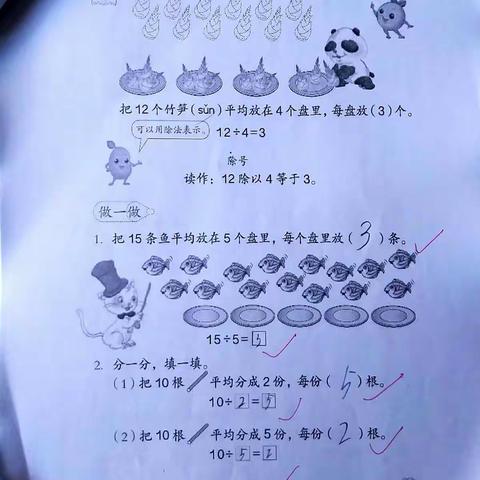 把12个竹笋(sǔn)平均放在4个盘里，每盘放(3)个。
可以用除法表示。
12÷4=3
除号
读作：12除以4等于3。
做一做
1. 把15条鱼平均放在5个盘里，每个盘里放( 3 )条。
15÷5=3
2. 分一分，填一填。
(1) 把10根 平均分成2份，每份( 5 )根。
10÷2=5
(2) 把10根 平均分成5份，每份( 2 )根。
10÷5=2